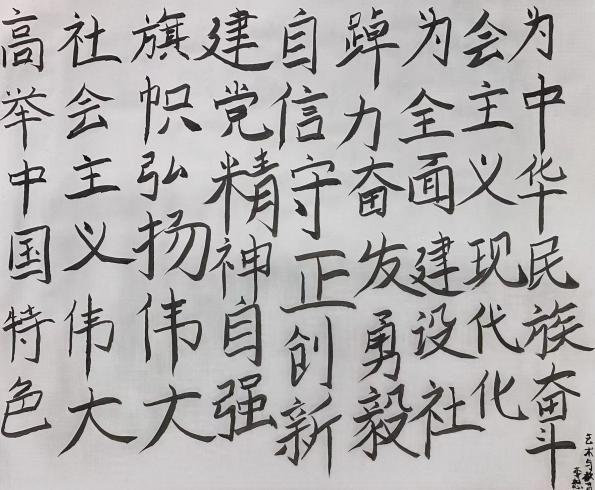 高举中国特色
社会主义伟大
旗帜弘扬伟大
建党精神自强
自信守正创新
踔力奋发勇毅
为全面建设社
会主义现代化
为中华民族奋斗
艺术与教